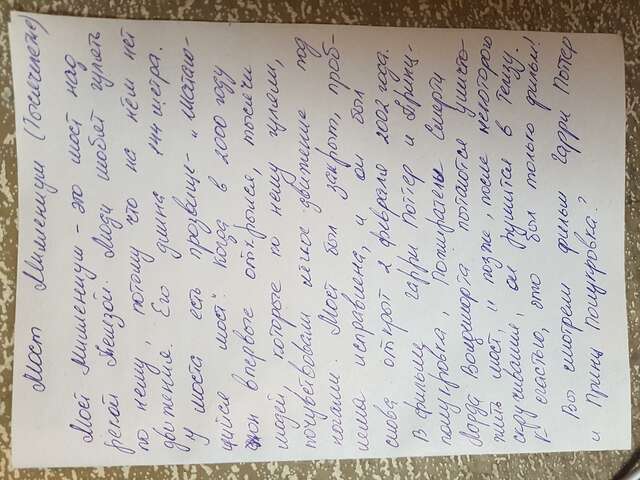 Мост Миллениум (Тысячелетие)
Мост Миллениум - это мост над
рекой Темзой. Люди любят гулять
по нему, потому что на нём нет
движения. Его длина 144 метра.
У моста есть прозвище - "Шатаю-
щийся мост". Когда в 2000 году
он впервые открылся, тысячи
людей которые по нему гуляли,
почувствовали лёгкое движение под
ногами. Мост был закрыт, проб-
лема исправлена, и он был
снова открыт 2 февраля 2002 года.
В фильме "Гарри Поттер и Принц-
полукровка", Пожиратели Смерти
Лорда Волдеморта пытаются уничто-
жить мост, и позже, после некоторого
скручивания, он рушится в Темзу.
К счастью, это был только фильм!
Вы смотрели фильм Гарри Поттер
и Принц Полукровка?